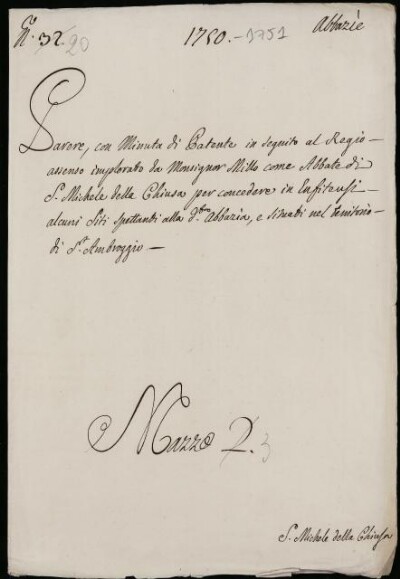 N.° 32. 20
1750.-1751
Abbazie
Parere, con Minuta di Patente in seguito al Regio
assenso implorato da Monsignor Millo come Abbate di
S. Michele della Chiusa per concedere in Enfiteusi
alcuni Siti Spettanti alla d.ta Abbazia, e situati nel territorio
di S.t Ambroggio —
Mazzo 2. 3
S. Michele della Chiusa